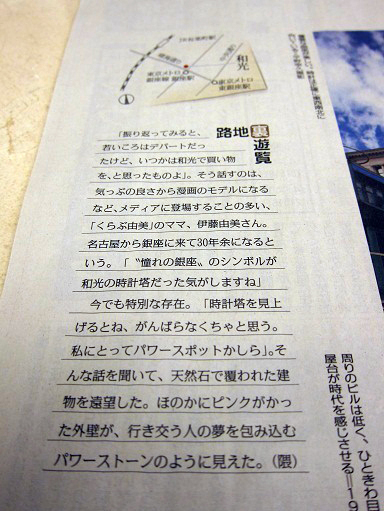 和光
東京メトロ
銀座線 銀座駅
東京メトロ
東銀座駅
路地裏遊覧
「振り返ってみると、
若いころはデパートだっ
たけど、いつかは和光で買い物
を、と思ったものよ」。そう話すのは、
気っぷの良さから漫画のモデルになる
など、メディアに登場することの多い、
「くらぶ由美」のママ、伊藤由美さん。
名古屋から銀座に来て30年余になると
いう。「〝憧れの銀座〟のシンボルが
和光の時計塔だった気がしますね」
今でも特別な存在。「時計塔を見上
げるとね、がんばらなくちゃと思う。
私にとってパワースポットかしら」。そ
んな話を聞いて、天然石で覆われた建
物を遠望した。ほのかにピンクがかっ
た外壁が、行き交う人の夢を包み込む
パワーストーンのように見えた。（隈）
周りのビルは低く、ひときわ目
屋台が時代を感じさせる＝19